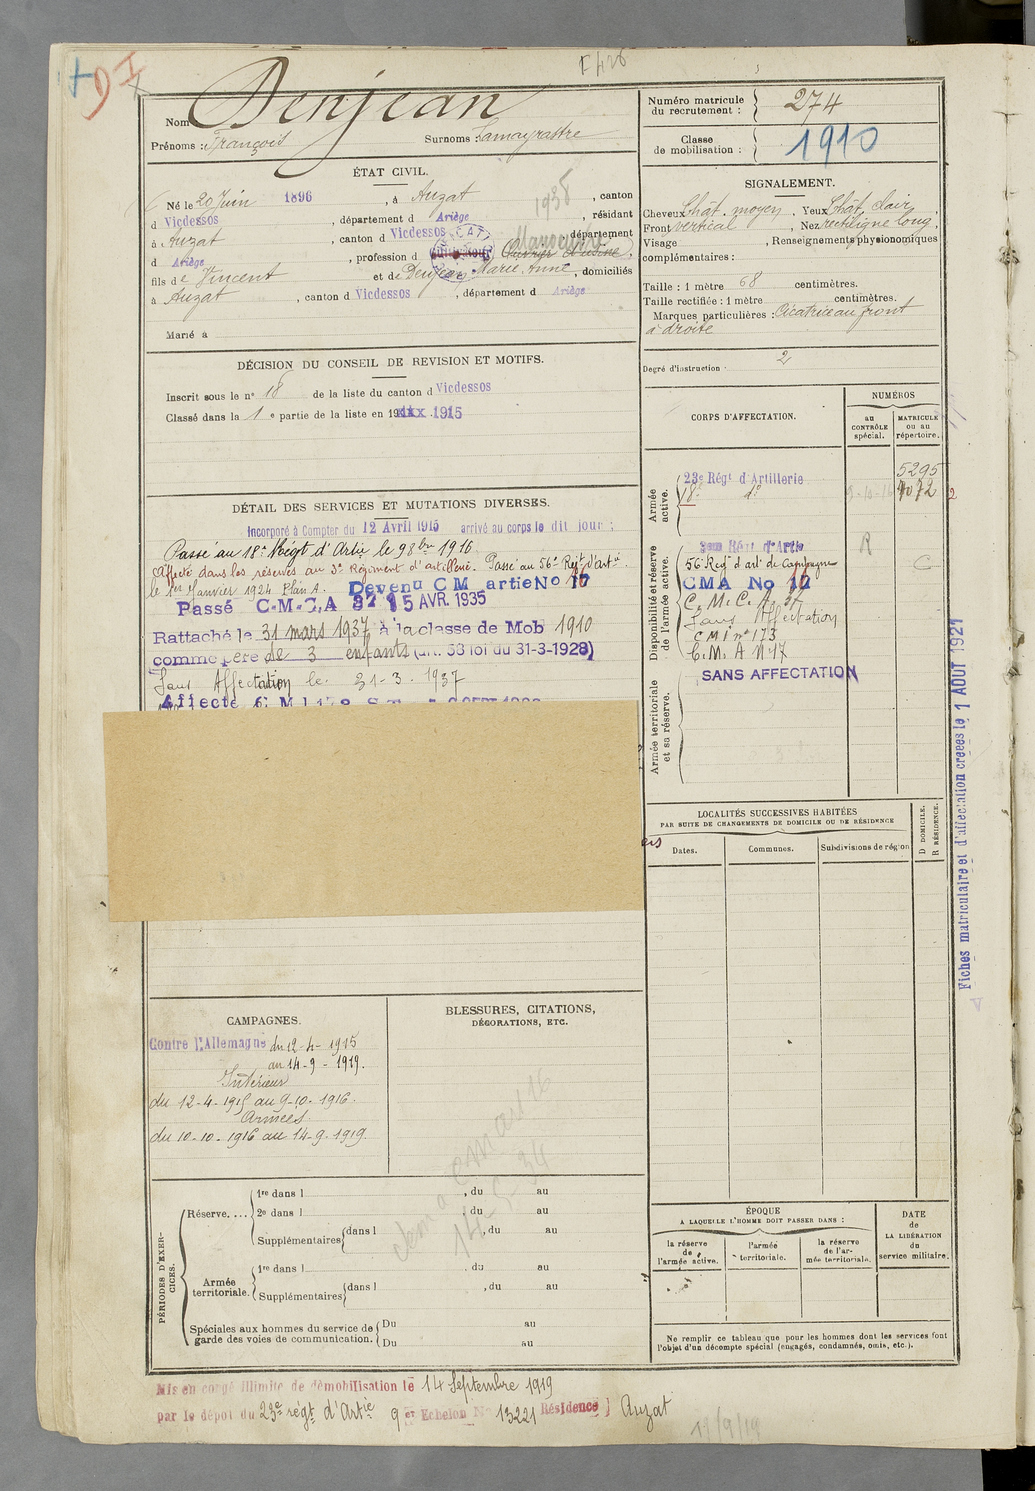 E 426
Nom Denjean
Prénoms : François Surnoms : Lamayrastre
ÉTAT CIVIL.
Né le 20 Juin 1896, à Auzat, canton
d Vicdessos, département d Ariège, résidant
à Auzat, canton d Vicdessos, département
d Ariège, profession d cultivateur Ouvrier d'usine Manoeuvre
1938
fils de Vincent et de Denjean Marie Anne, domiciliés
à Auzat, canton d Vicdessos, département d Ariège
Marié à
DÉCISION DU CONSEIL DE REVISION ET MOTIFS.
Inscrit sous le n° 18 de la liste du canton d Vicdessos
Classé dans la 1 e partie de la liste en 19 1915
DÉTAIL DES SERVICES ET MUTATIONS DIVERSES.
Incorporé à Compter du 12 Avril 1915 arrivé au corps le dit jour ;
Passé au 18e Régt d'Artie le 9 8bre 1916
Affecté dans les réserves au 3e Régiment d'artillerie. Passé au 56e Régt d'artie
le 1er Janvier 1924 Plan A. Devenu C M artie No 16
Passé C.M.C.A 37 15 AVR. 1935
Rattaché le 31 mars 1937 à la classe de Mob 1910
comme père de 3 enfants (art. 58 loi du 31-3-1928)
Sans Affectation le 31-3-1937
Affecté C M
CAMPAGNES.
Contre l'Allemagne du 12-4-1915
au 14-9-1919.
Intérieur
du 12-4-1915 au 9-10-1916.
Armées
du 10-10-1916 au 14-9-1919.
BLESSURES, CITATIONS,
DÉCORATIONS, ETC.
PÉRIODES D'EXERCICES.
Réserve....
1re dans l , du au
2e dans l , du au
Supplémentaires dans l , du au
Armée territoriale.
1re dans l , du au
Supplémentaires dans l , du au
Spéciales aux hommes du service de garde des voies de communication.
Du au
Du au
Mis en congé illimité de démobilisation le 14 Septembre 1919
par le dépôt du 23e régt d'Artie 9 er Echelon No 13221 Résidence } Auzat
19/9/19
Numéro matricule
du recrutement : 274
Classe
de mobilisation : 1910
SIGNALEMENT.
Cheveux Chât. moyen, Yeux Chât. clair,
Front vertical, Nez rectiligne long,
Visage , Renseignements physionomiques
complémentaires :
Taille : 1 mètre 68 centimètres.
Taille rectifiée : 1 mètre centimètres.
Marques particulières : Cicatrice au front
à droite
Degré d'instruction 2
CORPS D'AFFECTATION.
NUMÉROS
au CONTRÔLE spécial.
MATRICULE ou au répertoire.
Armée active.
23e Régt d'Artillerie 5295
18e do 9-10-16 7072
Disponibilité et réserve de l'armée active.
3eme Régt d'Artie R
56e Régt d'art de Campagne C
CMA No 16
C.M.C.A. 37
Sans Affectation
CMI n° 173
C.M.A N 17
SANS AFFECTATION
Armée territoriale et sa réserve.
LOCALITÉS SUCCESSIVES HABITÉES
PAR SUITE DE CHANGEMENTS DE DOMICILE OU DE RÉSIDENCE
Dates.
Communes.
Subdivisions de région
D DOMICILE.
R RÉSIDENCE.
ÉPOQUE
A LAQUELLE L'HOMME DOIT PASSER DANS :
la réserve de l'armée active.
l'armée territoriale.
la réserve de l'armée territoriale.
DATE
de
LA LIBÉRATION
du
service militaire.
Ne remplir ce tableau que pour les hommes dont les services font
l'objet d'un décompte spécial (engagés, condamnés, omis, etc.).
Fiches matriculaire et d'affectation créées le 1 AOUT 1921